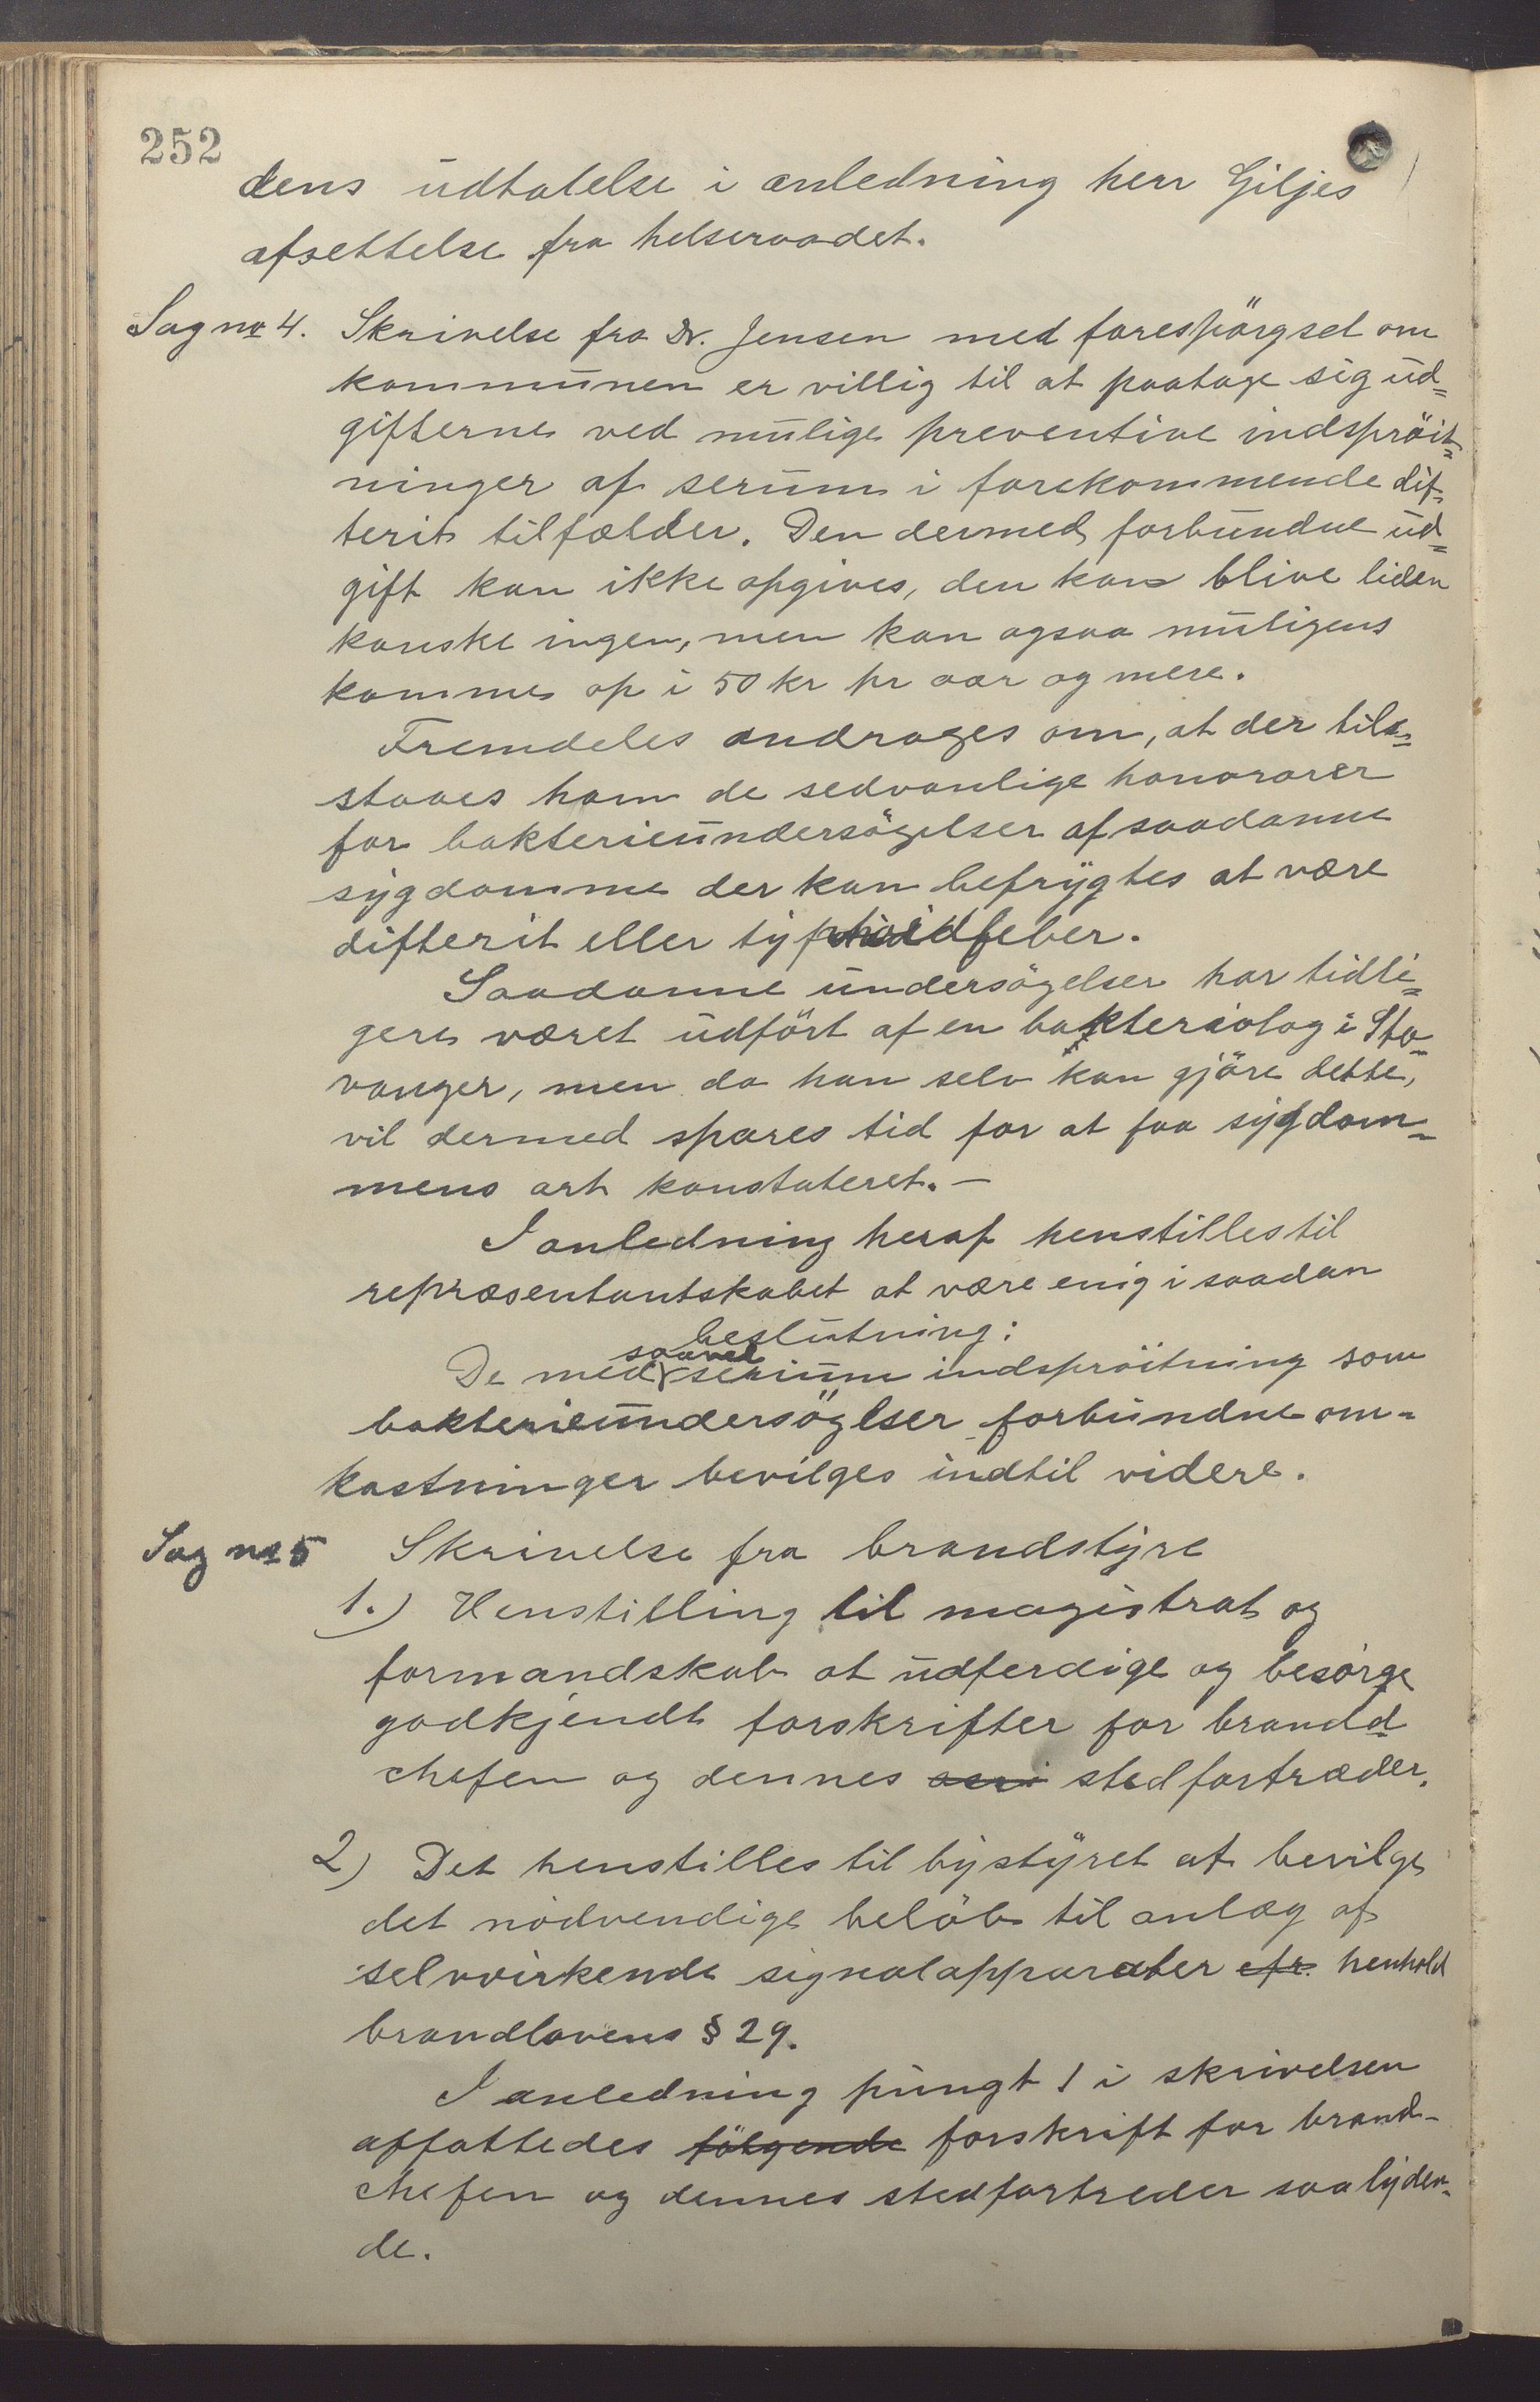 252
dens udtalelse i anledning herr Giljes
afsettelse fra helseraadet.
Sag no 4. Skrivelse fra Dr. Jensen med forespörgsel om
kommunen er villig til at paatage sig ud=
gifterne ved mulige preventive indspröit=
ninger af serum i forekommende dif=
terit tilfælder. Den dermed forbundne ud=
gift kan ikke opgives, den kan blive liden
kanske ingen, men kan ogsaa muligens
komme op i 50 kr pr aar og mere.
Fremdeles androges om, at der til=
staaes ham de sedvanlige honorarer
for bakterieundersögelser af saadanne
sygdomme der kan befrygtes at være
difterit eller typhoidfeber.
Saadanne undersögelser har tidli=
gere været udfört af en bakteriolog i Sta=
vanger, men da han selv kan gjöre dette,
vil dermed spares tid for at faa sygdom=
mens art konstateret. —
I anledning heraf henstilles til
repræsentantskabet at være enig i saadan
beslutning:
De med saavel serum indspröitning som
bakterieundersöglser forbundne om-
kostninger bevilges indtil videre.
Sag no 5 Skrivelse fra brandstyre
1.) Henstilling til magistrat og
formandskab at udferdige og besörge
godkjendt forskrifter for brandd
chefen og dennes stedfortræder.
2) Det henstilles til bystyret at bevilge
det nödvendige belöb til anlæg af
selvvirkende signalapparater cfr. henhold
brandlovens § 29.
I anledning pungt 1 i skrivelsen
affattedes fölgende forskrift for brand-
chefen og dennes stedfortreder saa lyden-
de.